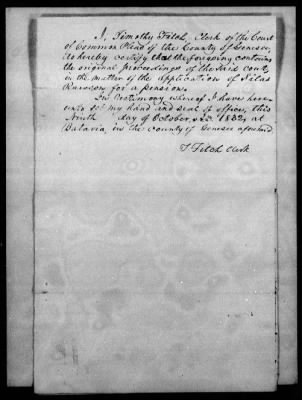 I, Timothy Fitch, Clerk of the Court
of Common Pleas of the County of Genesee,
do hereby certify that the foregoing contains
the original proceedings of the said court,
in the matter of the application of Silas
for a pension.
In Testimony whereof I have here-
unto set my hand and seal of office, this
Ninth day of October, 1832, at
Batavia, in the County of Genesee aforesaid
T Fitch Clerk